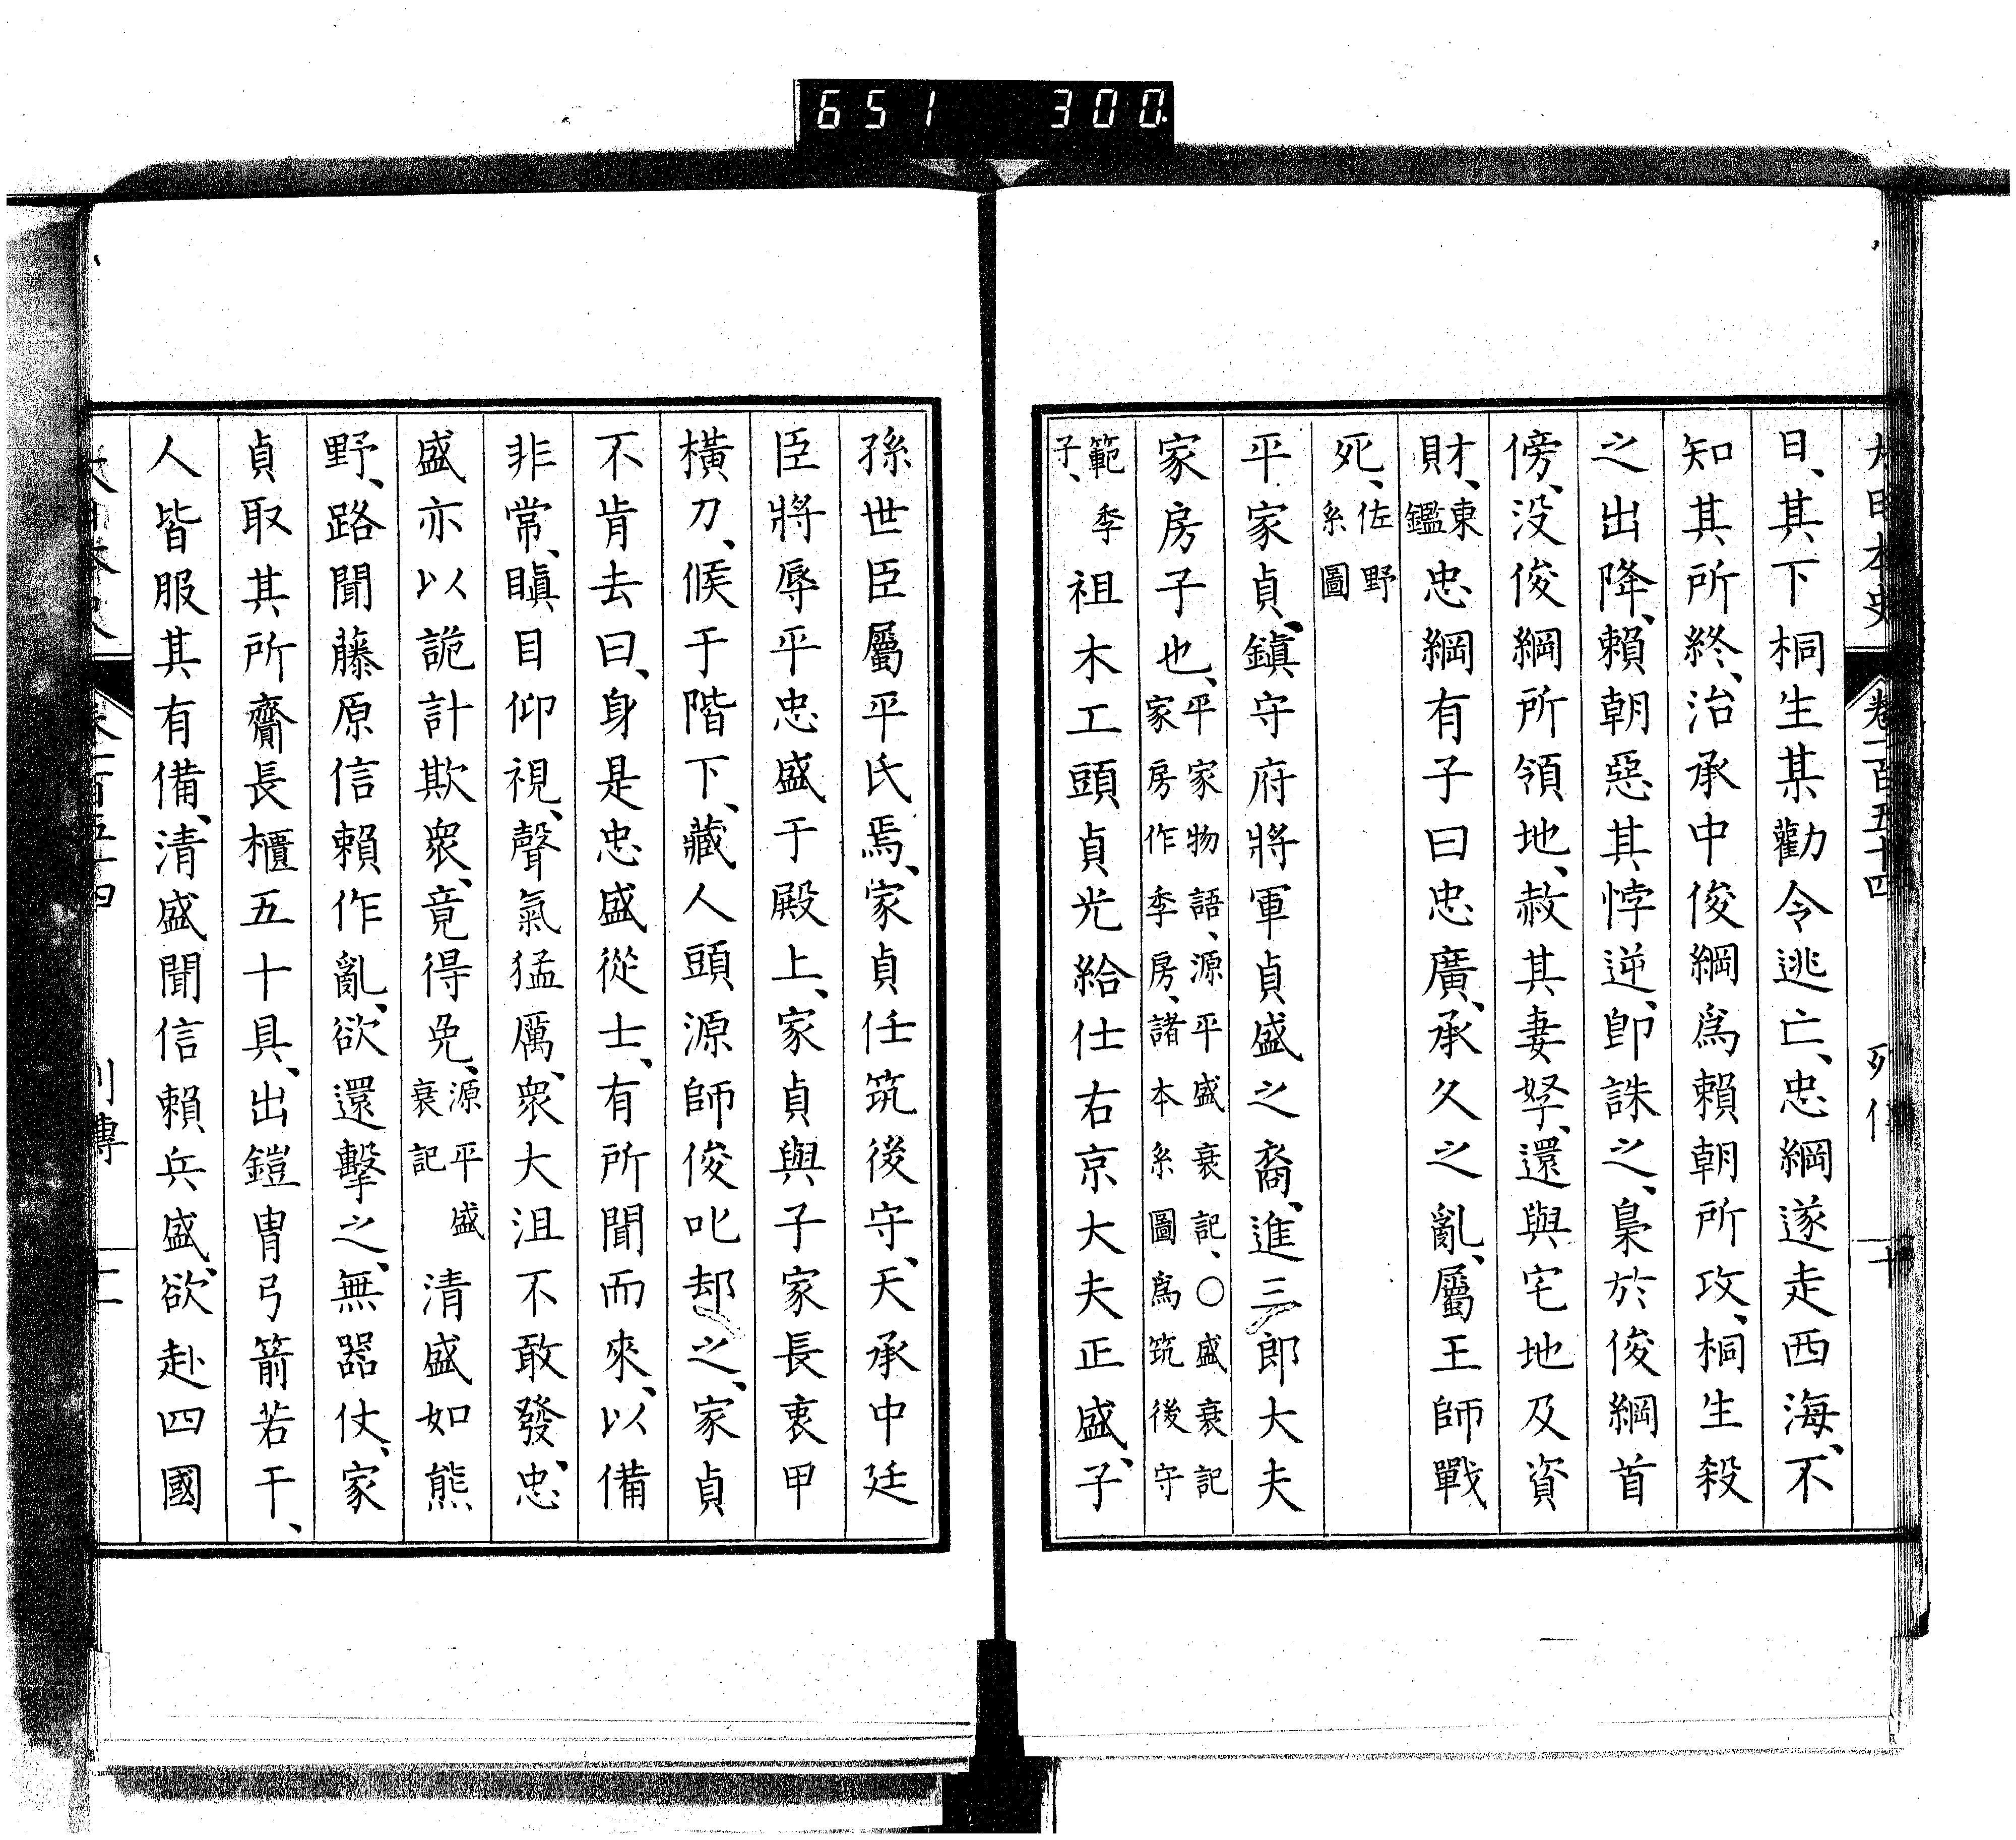 651 300
大日本史 卷一百五十四 列傳 十
日、其下桐生某勸令逃亡、忠綱遂走西海、不
知其所終、治承中俊綱爲賴朝所攻、桐生殺
之出降、賴朝惡其悖逆、卽誅之、梟於俊綱首
傍、没俊綱所領地、赦其妻孥、還與宅地及資
財、東鑑忠綱有子曰忠廣、承久之亂、屬王師戰
死、佐野系圖
平家貞、鎭守府將軍貞盛之裔、進三郎大夫
家房子也、平家物語、源平盛衰記、○盛衰記家房作季房、諸本系圖爲筑後守
範季子、祖木工頭貞光給仕右京大夫正盛、子
孫世臣屬平氏焉、家貞任筑後守、天承中廷
臣將辱平忠盛于殿上、家貞與子家長衷甲
橫刀、候于階下、藏人頭源師俊叱却之、家貞
不肯去曰、身是忠盛從士、有所聞而來、以備
非常、瞋目仰視、聲氣猛厲、衆大沮不敢發、忠
盛亦以詭計欺衆、竟得免、源平盛衰記清盛如熊
野、路聞藤原信賴作亂、欲還擊之、無器仗、家
貞取其所齎長櫃五十具、出鎧冑弓箭若干、
人皆服其有備、清盛聞信賴兵盛、欲赴四國